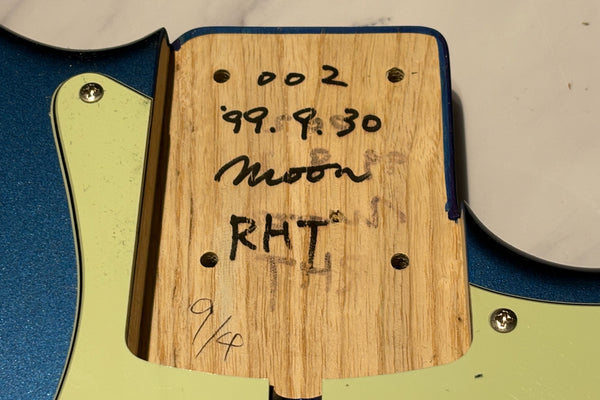 002
'99.9.30
Moon
RHT
9/4